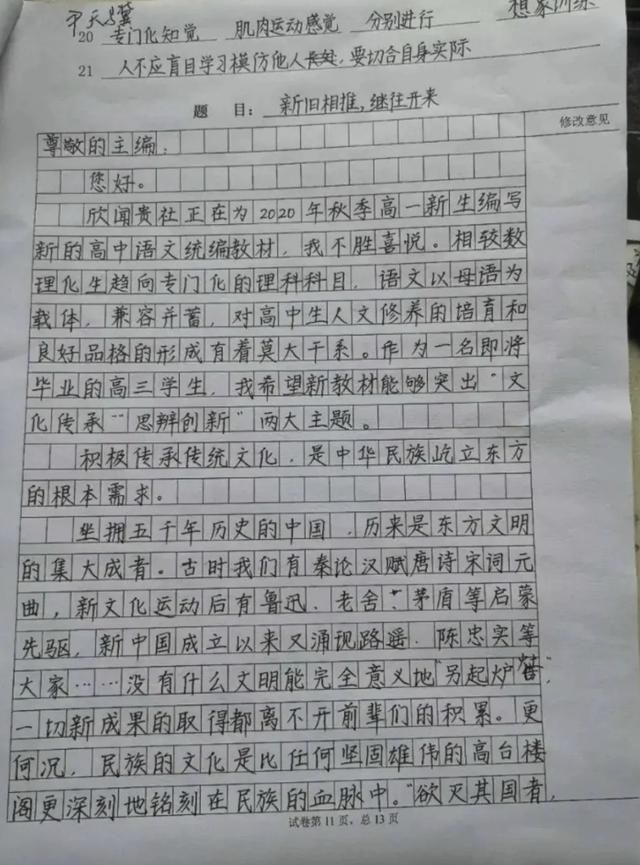 20 专门化知觉 肌肉运动感觉 分别进行 想象训练
21 人不应盲目学习模仿他人长处,要切合自身实际
题 目: 新旧相推,继往开来
修改意见
尊敬的主编:
您好。
欣闻贵社正在为2020年秋季高一新生编写
新的高中语文统编教材,我不胜喜悦。相较数
理化生趋向专门化的理科科目,语文以母语为
载体,兼容并蓄,对高中生人文修养的培育和
良好品格的形成有着莫大干系。作为一名即将
毕业的高三学生,我希望新教材能够突出“文
化传承”“思辨创新”两大主题。
积极传承传统文化,是中华民族屹立东方
的根本需求。
坐拥五千年历史的中国,历来是东方文明
的集大成者。古时我们有秦论汉赋唐诗宋词元
曲,新文化运动后有鲁迅、老舍、茅盾等启蒙
先驱,新中国成立以来又涌现路遥、陈忠实等
大家……没有什么文明能完全意义地“另起炉灶”,
一切新成果的取得都离不开前辈们的积累。更
何况,民族的文化是比任何坚固雄伟的高台楼
阁更深刻地铭刻在民族的血脉中。“欲灭其国者,
试卷第11页,总13页